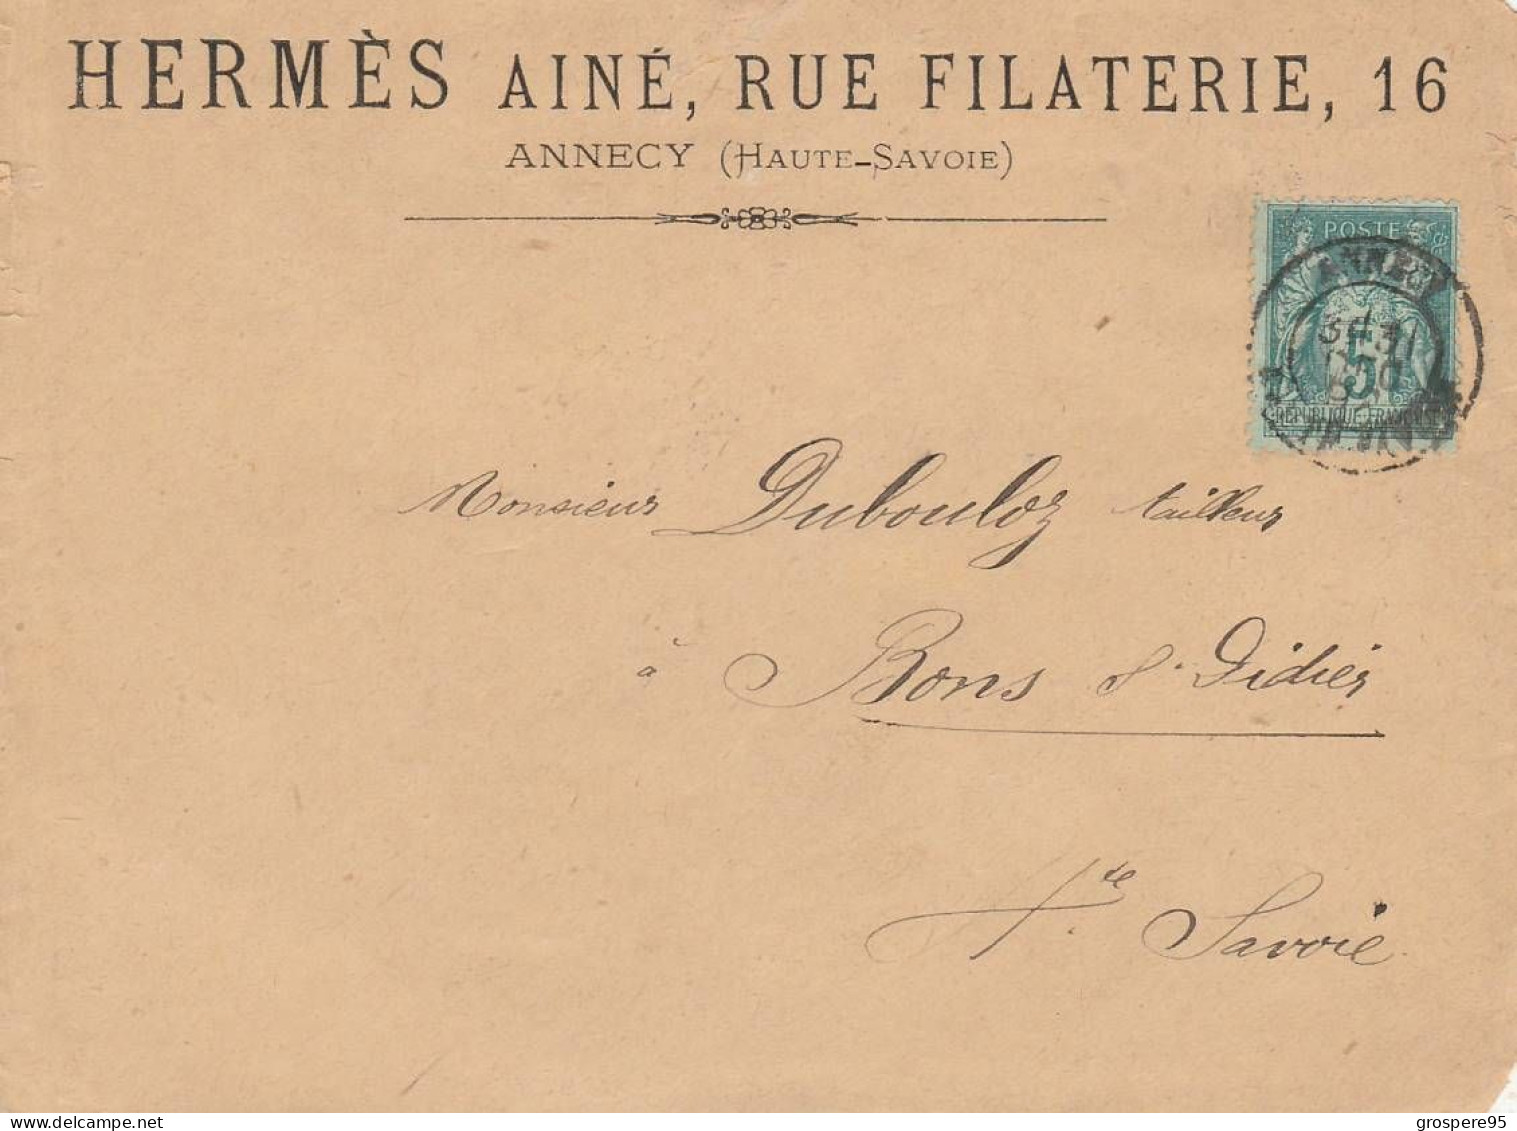 HERMÈS AINÉ, RUE FILATERIE, 16
ANNECY (HAUTE-SAVOIE)
POSTE
ANNECY
3E 31
5
RÉPUBLIQUE FRANÇAISE
Monsieur Dubouloz tailleur
à Bons St Didier
Hte Savoie
delcampe.net
grospere95